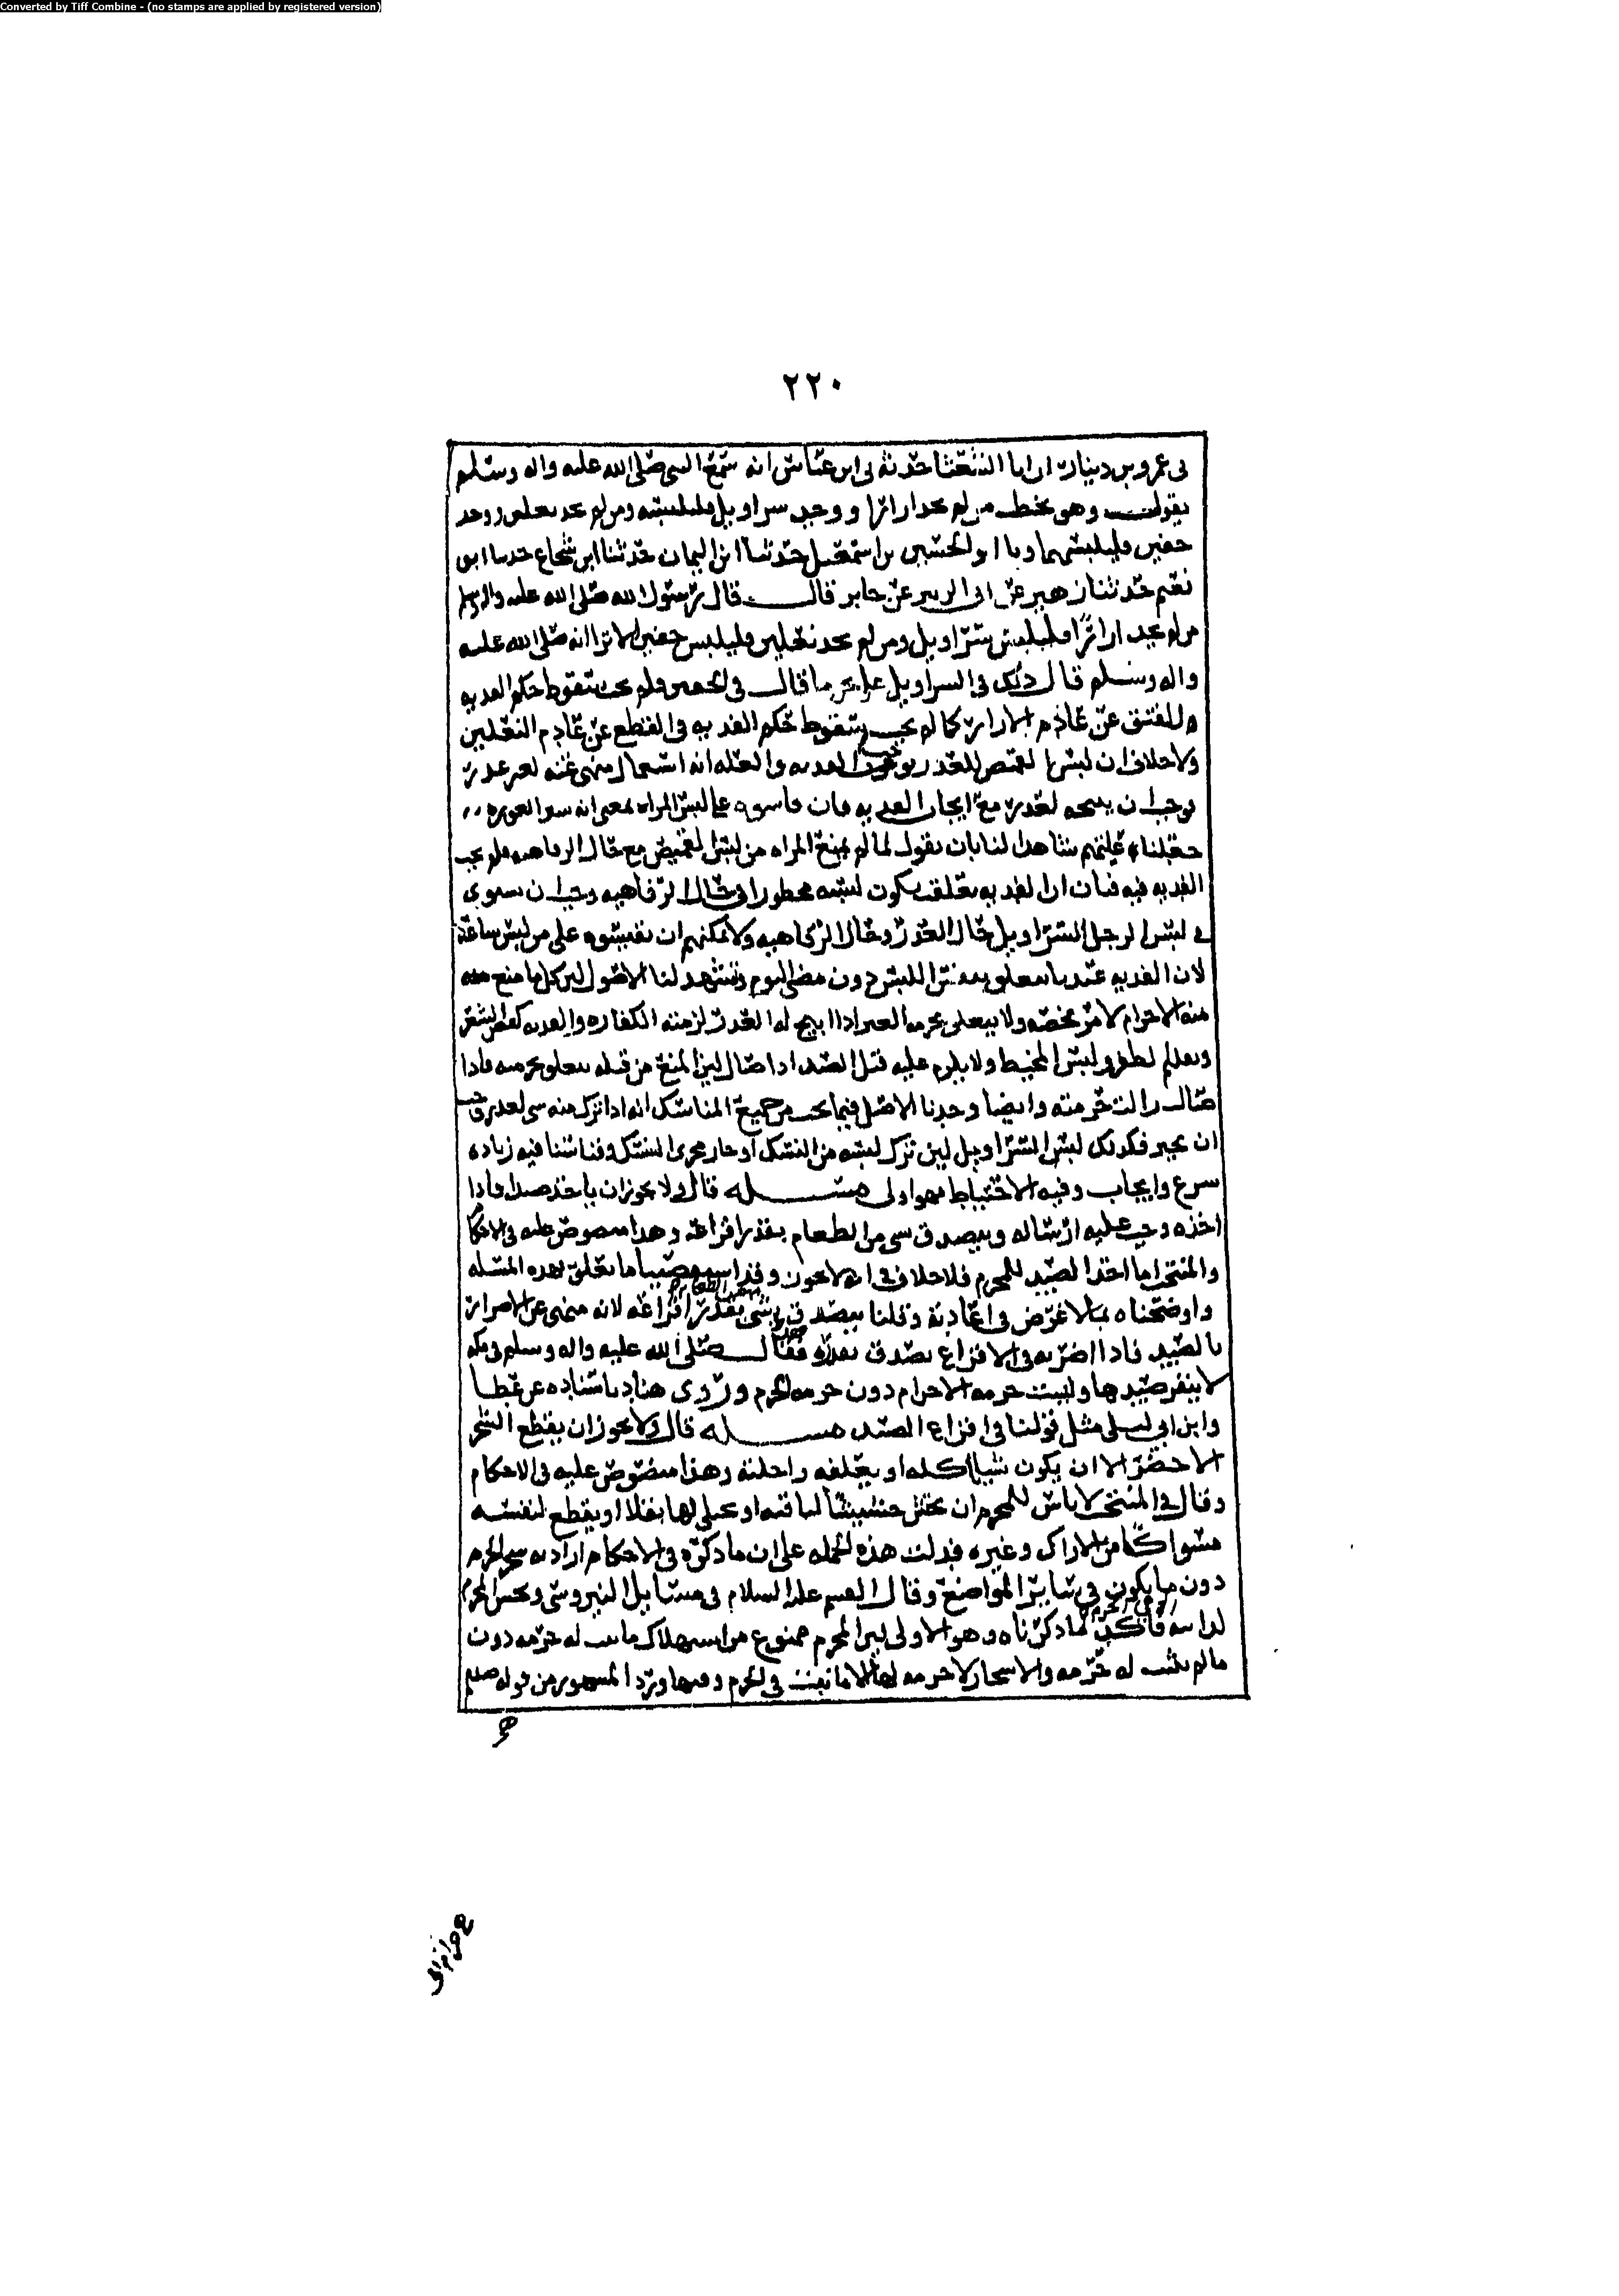 Converted by Tiff Combine - (no stamps are applied by registered version)
٢٢٠
بى عمرو بن دينار ان ابا الشعثا حدثه لى ابن عباس انه سمع النبى صلى الله عليه واله وسلم
يقول وهو يخطب من لم يجد ازارا ووجد سراويل فليلبسه ومن لم يجد نعلين ووجد
خفين فليلبسهما وبا ابو الحسين بن اسمعيل حدثنا ابن اليمان حدثنا ابن شجاع حدثنا ابو
نعيم حدثنا زهير عن ابى الزبير عن جابر قال قال رسول الله صلى الله عليه واله وسلم
من لم يجد ازارا فليلبس سراويل ومن لم يجد نعلين فليلبس خفين الا ترا انه صلى الله عليه
واله وسلم قال ذلك فى السراويل على نحو ما قال فى الخفين فلم يجب سقوط حكم الفديه
عن عادم الازار كما لم يجب سقوط حكم الفديه فى القطع عن عادم النعلين
ولا خلاف ان لبس القميص للعذر يوجب الفديه والعله انه استعمال منهى عنه لغير عذر
فوجب ان يبيحه لعذر مع ايجاب الفديه فان قاسوه على لبس المراه بمعنى انه ستر العوره
جعلنا علتهم شاهدا لنا بان نقول لما لم يمنع المراه من لبس القميص مع حال الرفاهيه فلم يجب
الفديه فيه فبان ان الفديه تعلقت بكون لبسه محظورا فى حال الرفاهيه وجب ان يستوى
فى لبس الرجل السراويل حال العذر وحال الرفاهيه ولا يمكنهم ان يقيسوه على من لبس ساعة
لان الفديه عندنا تتعلق بنفس اللبس دون مضى اليوم وتشهد لنا الاصول لان كل ما منع منه
منه الاحرام لامر يخصه ولا يتعلق بحرمه الغير اذا ابيح له العذر لزمته الكفاره والفديه كحلق الشعر
وتقليم الظفر ولبس المخيط ولا يلزم عليه قتل الصيد اذا صال لان المنع من قتله يتعلق بحرمته فاذا
صال زالت حرمته وايضا وجدنا الاصل فيما يجب من جميع المناسك انه اذا ترك منه شى لعذر وجب
ان يجبر فكذلك لبس السراويل لان ترك لبسه من النسك او جار مجرى النسك وقياسنا فيه زياده
شرع وايجاب وفيه الاحتياط فهو اولى مسله قال ولا يجوز ان ياخذ صيدا فاذا
اخذه وجب عليه ارساله ويتصدق بشى من الطعام بقدر افزاعه وهذا منصوص عليه فى الاحكا
والمنتخب اما اخذ الصيد للمحرم فلا خلاف فى انه لا يجوز وقد استقصينا ما تعلق بهذه المسله
واوضحناه بما لا غرض فى اعادته وقلنا يتصدق بشى بقدر افزاعه لانه منهى عن الاضرار
بالصيد فاذا اضر به فى الافزاع تصدق بقدره فقال صلى الله عليه واله وسلم فى مكه
لا ينفر صيدها وليست حرمه الاحرام دون حرمه الحرم وروى هناد باسناده عن عطا
وابن ابى ليلى مثل قولنا فى افزاع الصيد مسله قال ولا يجوز ان يقطع الشجر
الاخضر الا ان يكون شيا اكله او يعلفه راحلته وهذا منصوص عليه فى الاحكام
وقال فى المنتخب لا باس للمحرم ان يحتش حشيشا لناقته او يختلى لها بقلا او يقطع لنفسه
مسواكا من الاراك وغيره فدلت هذه الجمله على ان ما ذكره فى الاحكام اراد به شجر الحرم
دون ما يكون فى سائر المواضع وقال القسم عليه السلام فى مسايل النيروسى ويحتش المحرم
لدابته الا فى الحرم فاكد ما ذكرناه وهو الاولى لان المحرم ممنوع من استهلاك ما ثبت له حرمه دون
ما لم يثبت له حرمه والاشجار لا حرمه لها الا ما نبت فى الحرم وفيها ورد المشهور من قوله صلعم